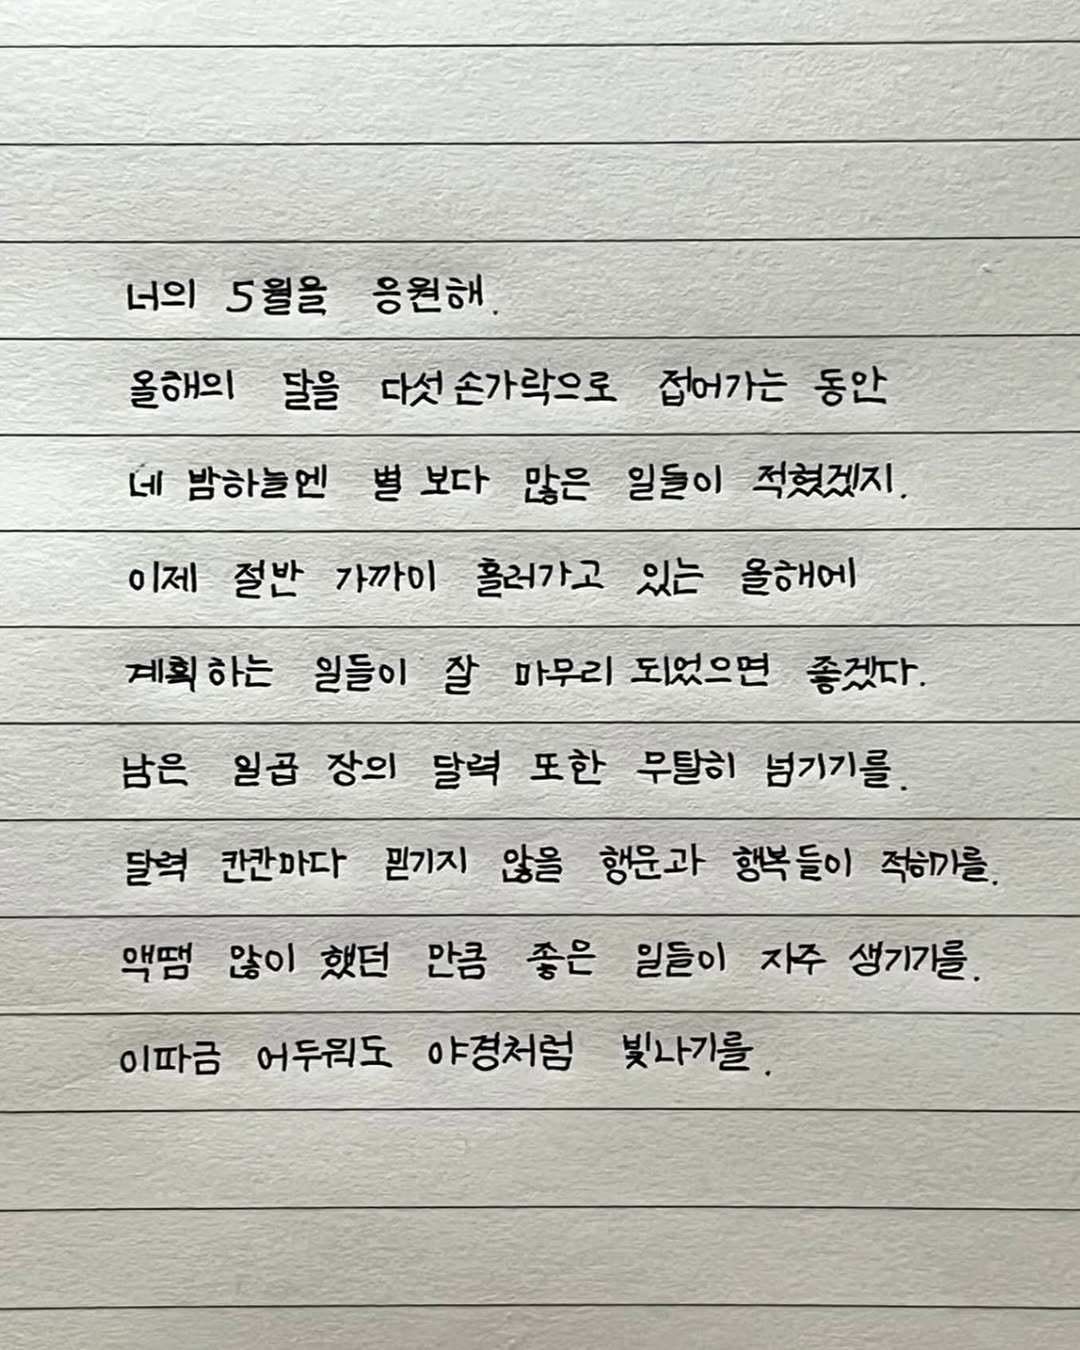 너의 5월을 응원해.
올해의 달을 다섯 손가락으로 접어가는 동안
네 밤하늘엔 별 보다 많은 일들이 적혔겠지.
이제 절반 가까이 흘러가고 있는 올해에
계획하는 일들이 잘 마무리 되었으면 좋겠다.
남은 일곱 장의 달력 또한 무탈히 넘기기를.
달력 칸칸마다 믿기지 않을 행운과 행복들이 적히기를.
액땜 많이 했던 만큼 좋은 일들이 자주 생기기를.
이따금 어두워도 야경처럼 빛나기를.